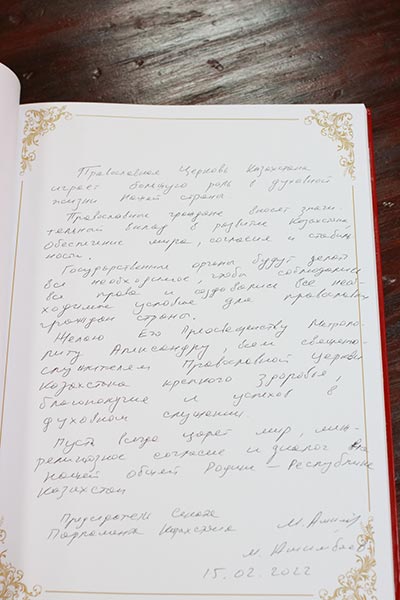 Православная Церковь Казахстана
играет большую роль в духовной
жизни нашей страны
Православные граждане вносят значи-
тельный вклад в развитие Казахстана
обеспечение мира, согласия и стабиль-
ности.
Государственные органы будут делать
все необходимое, чтобы соблюдались
все права и создавались все необ-
ходимые условия для православных
граждан страны.
Желаю Его Преосвященству Митропо-
литу Александру, всем священно-
служителям Православной Церкви
Казахстана крепкого здоровья,
благополучия и успехов в
духовном служении.
Пусть всегда царят мир, меж-
религиозное согласие и диалог
нашей общей Родине – Республике
Казахстан
Председатель Сената
Парламента Казахстана
М. Ашимбаев
15.02.2022